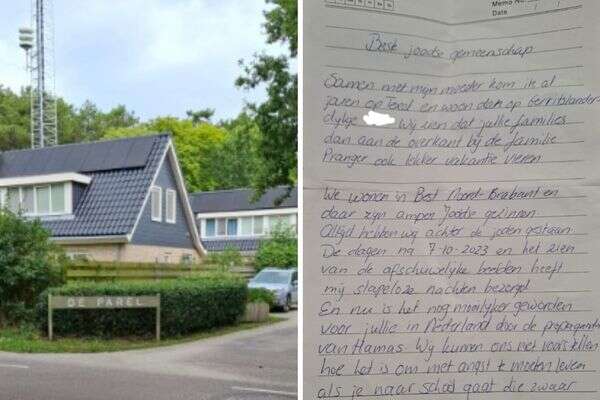 DE PAREL
Memo No.
Date / /
Beste joodse gemeenschap
Samen met mijn moeder kom ik al
jaren op Texel en woon dan op Gerritslander-
dykje Wy zien dat jullie families
dan aan de overkant bij de familie
Pranger ook lekker vakantie vieren
We wonen in Best Noord-Brabant en
daar zijn amper Joodse gezinnen
Altijd hebben wij achter de joden gestaan
De dagen na 7-10-2023 en het zien
van de afschuwelijke beelden heeft
mij slapeloze nachten bezorgd
En nu is het nog moeilijker geworden
voor jullie in Nederland door de propaganda
van Hamas Wy kunnen ons niet voorstellen
hoe het is om met angst te moeten leven
als je naar school gaat die zwaar